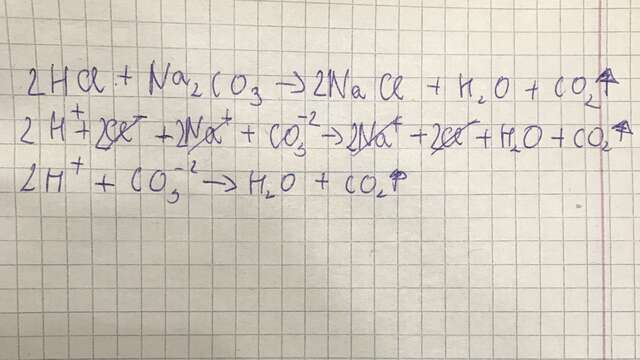 2HCl + Na₂CO₃ → 2NaCl + H₂O + CO₂↑
2H⁺ + 2Cl⁻ + 2Na⁺ + CO₃⁻² → 2Na⁺ + 2Cl⁻ + H₂O + CO₂↑
2H⁺ + CO₃⁻² → H₂O + CO₂↑